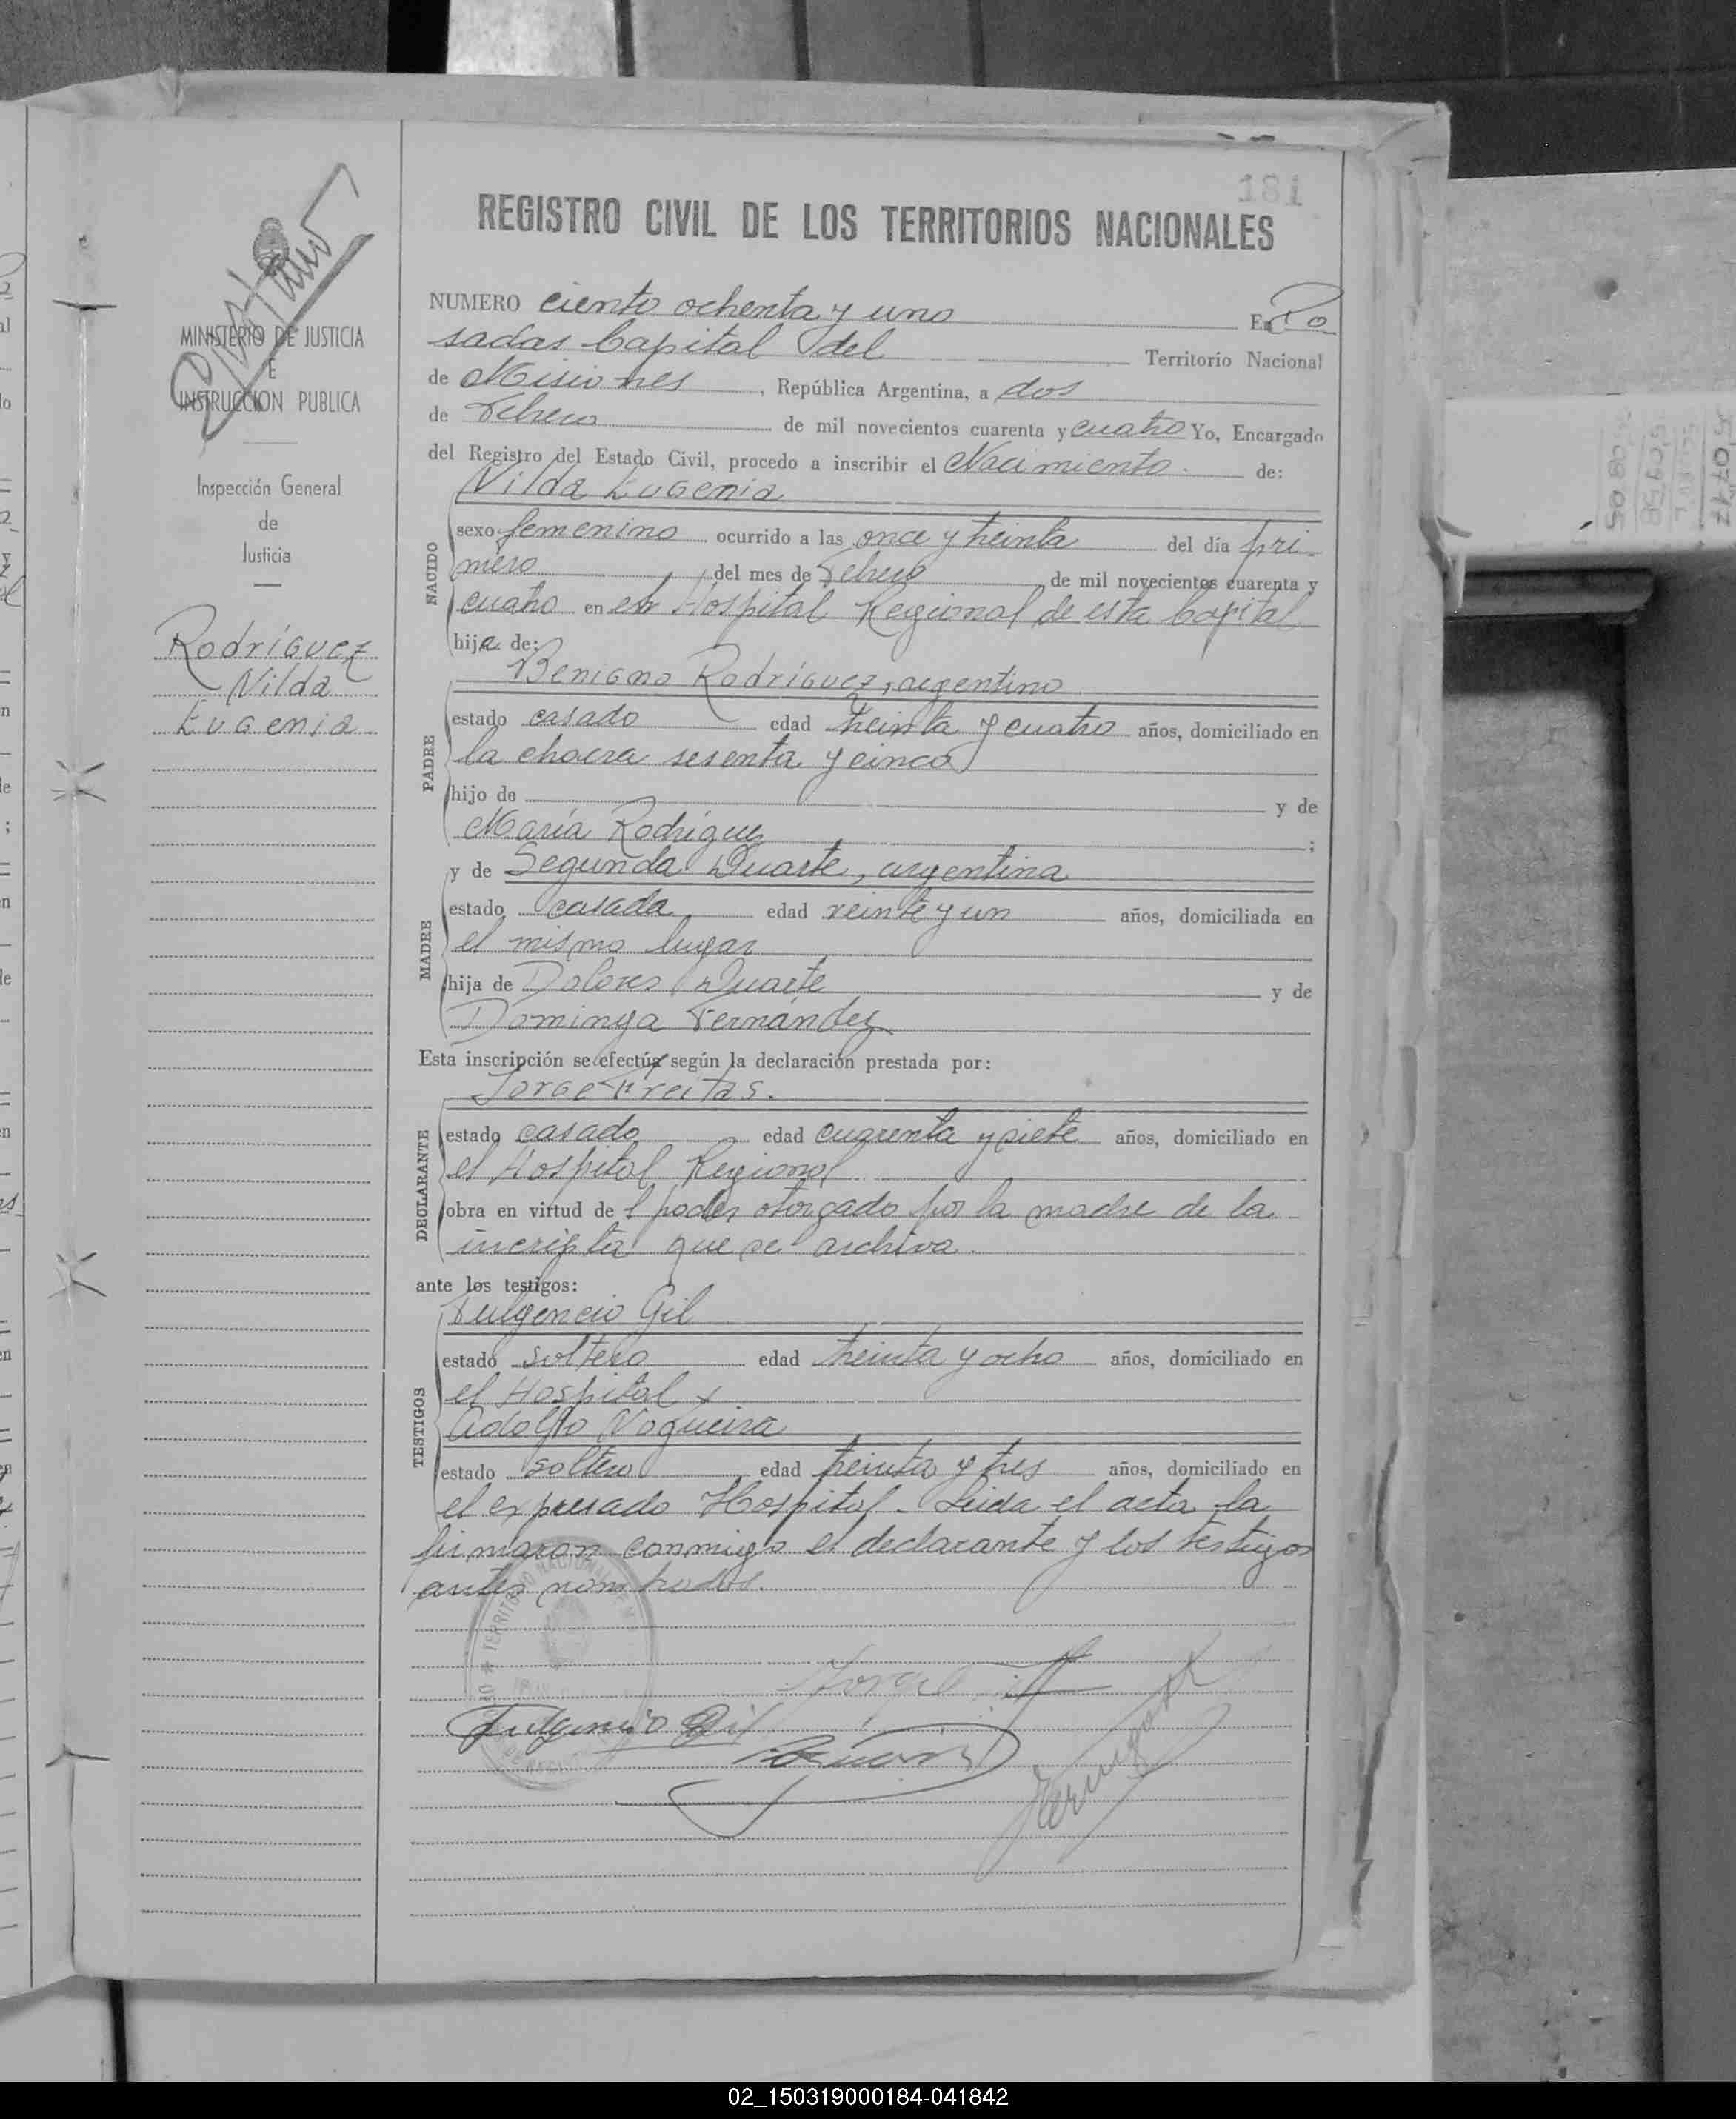 181
REGISTRO CIVIL DE LOS TERRITORIOS NACIONALES
MINISTERIO DE JUSTICIA
E
INSTRUCCION PUBLICA
Inspección General
de
Justicia
Rodríguez
Nilda
Eugenia
NUMERO ciento ochenta y uno En Po
sadas Capital del Territorio Nacional
de Misiones, República Argentina, a dos
de Febrero de mil novecientos cuarenta y cuatro Yo, Encargado
del Registro del Estado Civil, procedo a inscribir el Nacimiento de:
Nilda Eugenia
NACIDO
sexo femenino ocurrido a las once y treinta del día pri-
mero del mes de Febrero de mil novecientos cuarenta y
cuatro en el Hospital Regional de esta Capital
hija de:
Benigno Rodríguez, argentino
PADRE
estado casado edad treinta y cuatro años, domiciliado en
la chacra sesenta y cinco
hijo de y de
María Rodríguez ;
y de Segunda Duarte, argentina
MADRE
estado casada edad veinte y un años, domiciliada en
el mismo lugar
hija de Dolores Duarte y de
Dominga Fernández
Esta inscripción se efectúa según la declaración prestada por:
Jorge Freitas.
DECLARANTE
estado casado edad cuarenta y siete años, domiciliado en
el Hospital Regional
obra en virtud de l poder otorgado por la madre de la
incripta que se archiva.
ante los testigos:
Fulgencio Gil
TESTIGOS
estado soltero edad treinta y ocho años, domiciliado en
el Hospital y
Adolfo Nogueira
estado soltero edad treinta y tres años, domiciliado en
el expresado Hospital. Leida el acta la
firmaron conmigo el declarante y los testigos
antes nombrados.
Jorge
Fulgencio Gil
02_150319000184-041842